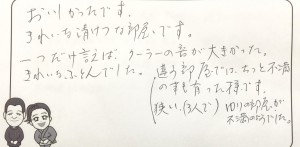 おいしかったです。
きれいな清けつな部屋です。
一つだけ言えば、クーラーの音が大きかった。
きれいなふとんでした。
違う部屋では、ちっと不満
のすも有った様です。
狭い(3人で)
ゆりの部屋が
不満のようでした。